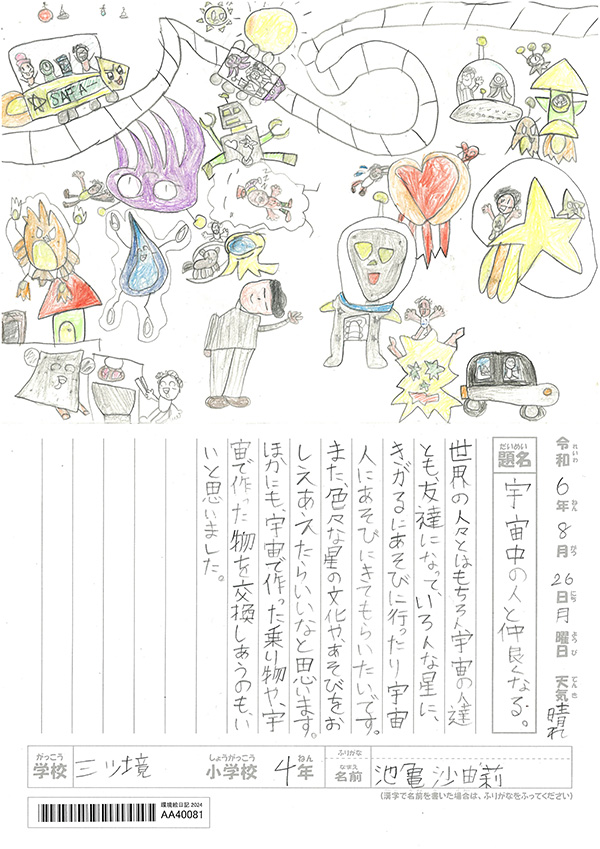 令和6年8月26日月曜日 天気 晴れ
れいわ ねん がつ にち ようび てんき
だいめい
題名 宇宙中の人と仲良くなる。
世界の人々とはもちろん、宇宙の人達
とも、友達になって、いろんな星に、
きがるにあそびに行ったり、宇宙
人にあそびにきてもらいたいです。
また、色々な星の文化や、あそびをお
しえあえたらいいなと思います。
ほかにも、宇宙で作った乗り物や、宇
宙で作った物を交換しあうのもい
いと思いました。
がっこう しょうがっこう ねん ふりがな
学校 三ツ境 小学校 4年 なまえ 名前 池亀 沙由莉
(漢字で名前を書いた場合は、ふりがなをふってください)
環境絵日記 2024
AA40081